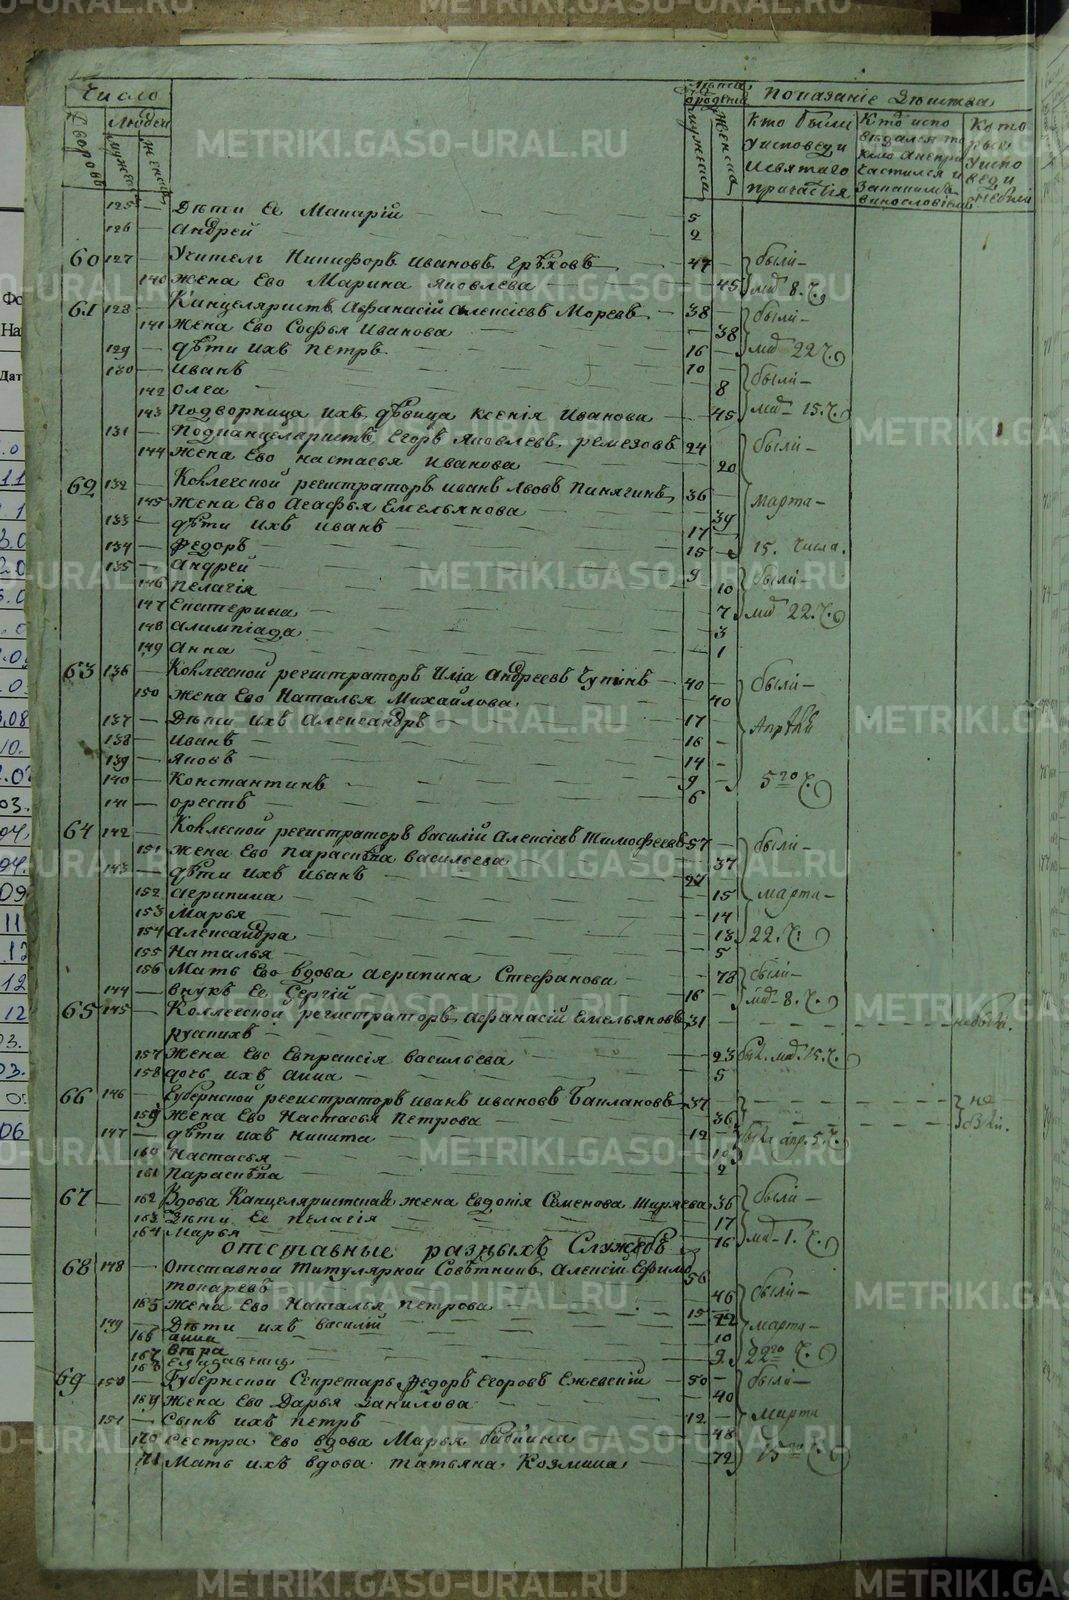 Число
Дворовъ
Людей
мужеска
женска
Лѣта
мужеска
женска
Показаніе Дѣйства
Кто были
у исповеди
и святаго
причастія
Кто испо
ведался то
Кото
рыи
у испо
веди
небыли
125 — Дѣти Ее Макарій — 5
126 — Андрей — 2
60 127 — Учитель Никифоръ Ивановъ Грѣховъ — 47 — были —
140 жена Ево Марина Яковлева — 45 мар 8. Ч.
61 128 — Канцеляристъ Афанасій Алексіевъ Моревъ — 38 — были —
141 жена Ево Софья Иванова — 38
129 — дѣти ихъ Петръ — 16 — мар 22 Ч.
130 — Иванъ — 10 — были —
142 Олга — 8
143 Подворница ихъ дѣвица Ксенія Иванова — 45 мар — 15. Ч.
131 — Подканцеляристъ Егоръ Яковлевъ Ремезовъ 24 были —
144 жена Ево Настасья Иванова — 20
62 132 — Коллеской регистраторъ Иванъ Львовъ Пинягинъ 36 — марта —
145 жена Ево Агафья Емельянова — 39
133 — дѣти ихъ Иванъ — 17 —
134 — Федоръ — 15 — 15. числа.
135 — Андрей — 9 были —
146 Пелагія — 10
147 Екатерина — 7 мар 22. Ч.
148 Алимпіада — 3
149 Анна — 1
63 136 — Коллеской регистраторъ Иліа Андреевъ Чупинъ — 40 — были —
150 жена Ево Наталья Михайлова — 40
137 — Дѣти ихъ Александръ — 17 — Апрѣля
138 — Иванъ — 16 —
139 — Яковъ — 14 —
140 — Константинъ — 9 — 5го Ч.
141 — Орестъ — 6
64 142 — Коллеской регистраторъ Василій Алексіевъ Тимофеевъ 57 — были —
151 жена Ево Парасковья Васильева — 37
143 — дѣти ихъ Иванъ — 27
152 Агрипина — 15 марта —
153 Марья — 14
154 Александра — 13 22. Ч.
155 Наталья — 5
156 Мать Ево вдова Агрипина Стефанова — 78 были —
144 — внукъ Ее Сергій — 16 — мар — 8. Ч.
65 145 — Коллеской регистраторъ Афанасій Емельяновъ 31 — небылъ.
Русскихъ
157 жена Ево Евпраксія Васильева — 23 был. мар. 15. Ч.
158 дочь ихъ Анна — 5
66 146 — Губернской регистраторъ Иванъ Ивановъ Баклановъ 37 — не
159 жена Ево Настасья Петрова — 36 были.
147 — дѣти ихъ Никита — 12 были апр. 5. Ч.
160 Настасья — 10
161 Парасковья — 2
67 — 162 Вдова Канцеляристская жена Евдокія Семенова Ширяева 36 были —
163 Дѣти Ее Пелагія — 17
164 Марья — 16 мар — 1. Ч.
Отставные разныхъ Службъ
68 148 — Отставной Титулярной Совѣтникъ Алексій Ефимо 56
Токаревъ были —
165 жена Ево Наталья Петрова — 46
149 — Дѣти ихъ Василій — 15 марта —
166 Анна — 12
167 Вѣра — 10
168 Елизавета — 9 22го Ч.
69 150 — Губернской Секретарь Федоръ Егоровъ Ежевскій — 50 — были —
169 жена Ево Дарья Данилова — 40
151 — Сынъ ихъ Петръ — 12 — марта
170 Сестра Ево вдова Марья — 48
171 Мать ихъ вдова Татьяна Козмина — 72 15го Ч.
METRIKI.GASO-URAL.RU